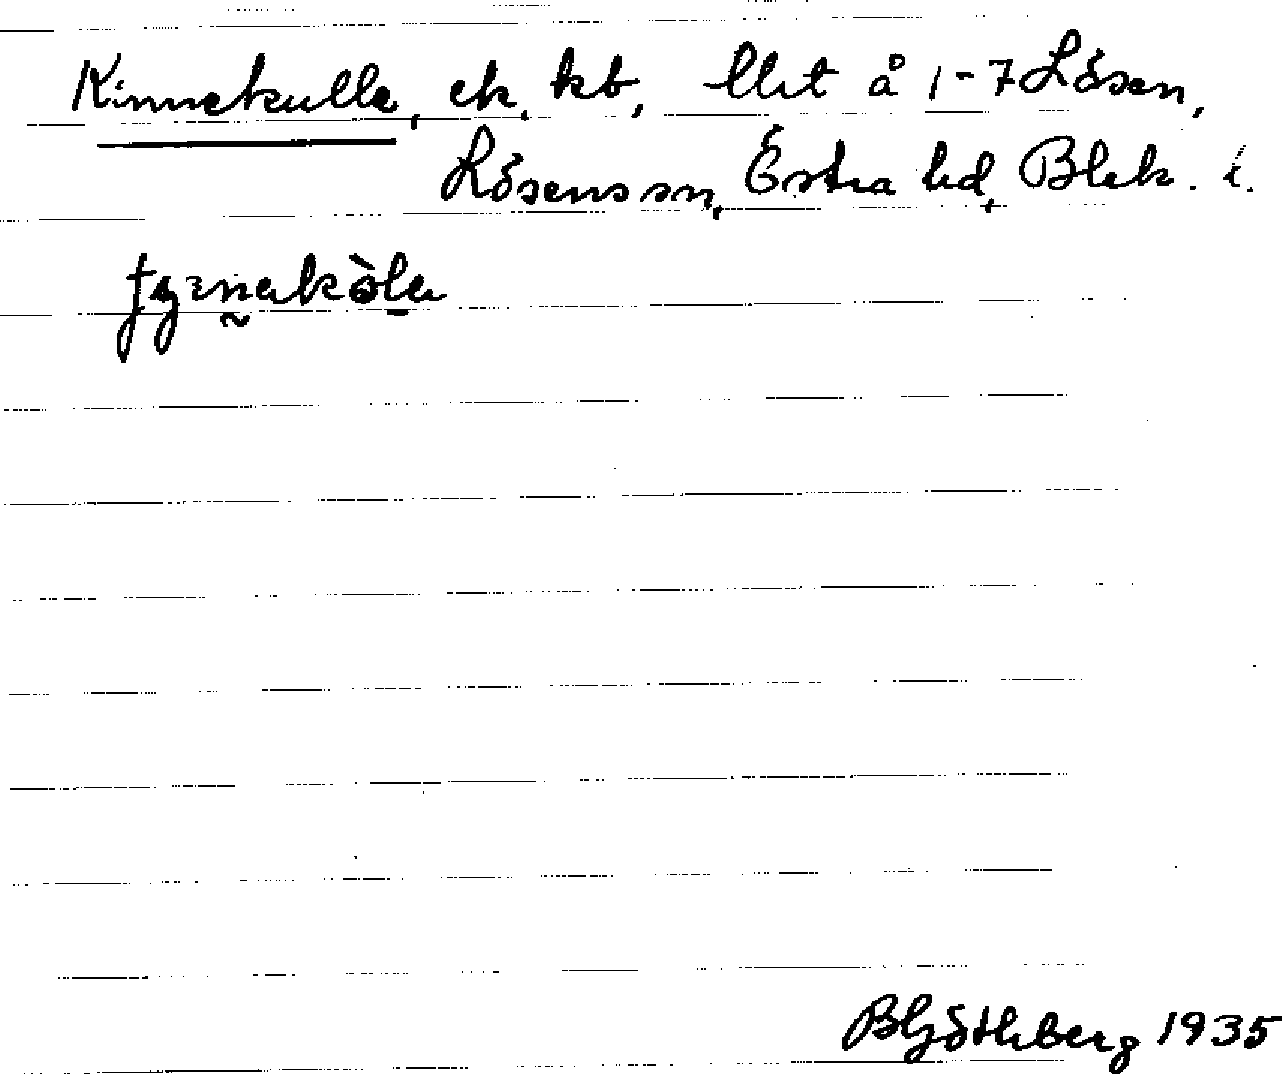 Kinnekulle, ek. kb, Utst å 1-7 Lösen,
Lösens sn, Östra hd, Blek. l.
BGöthberg 1935